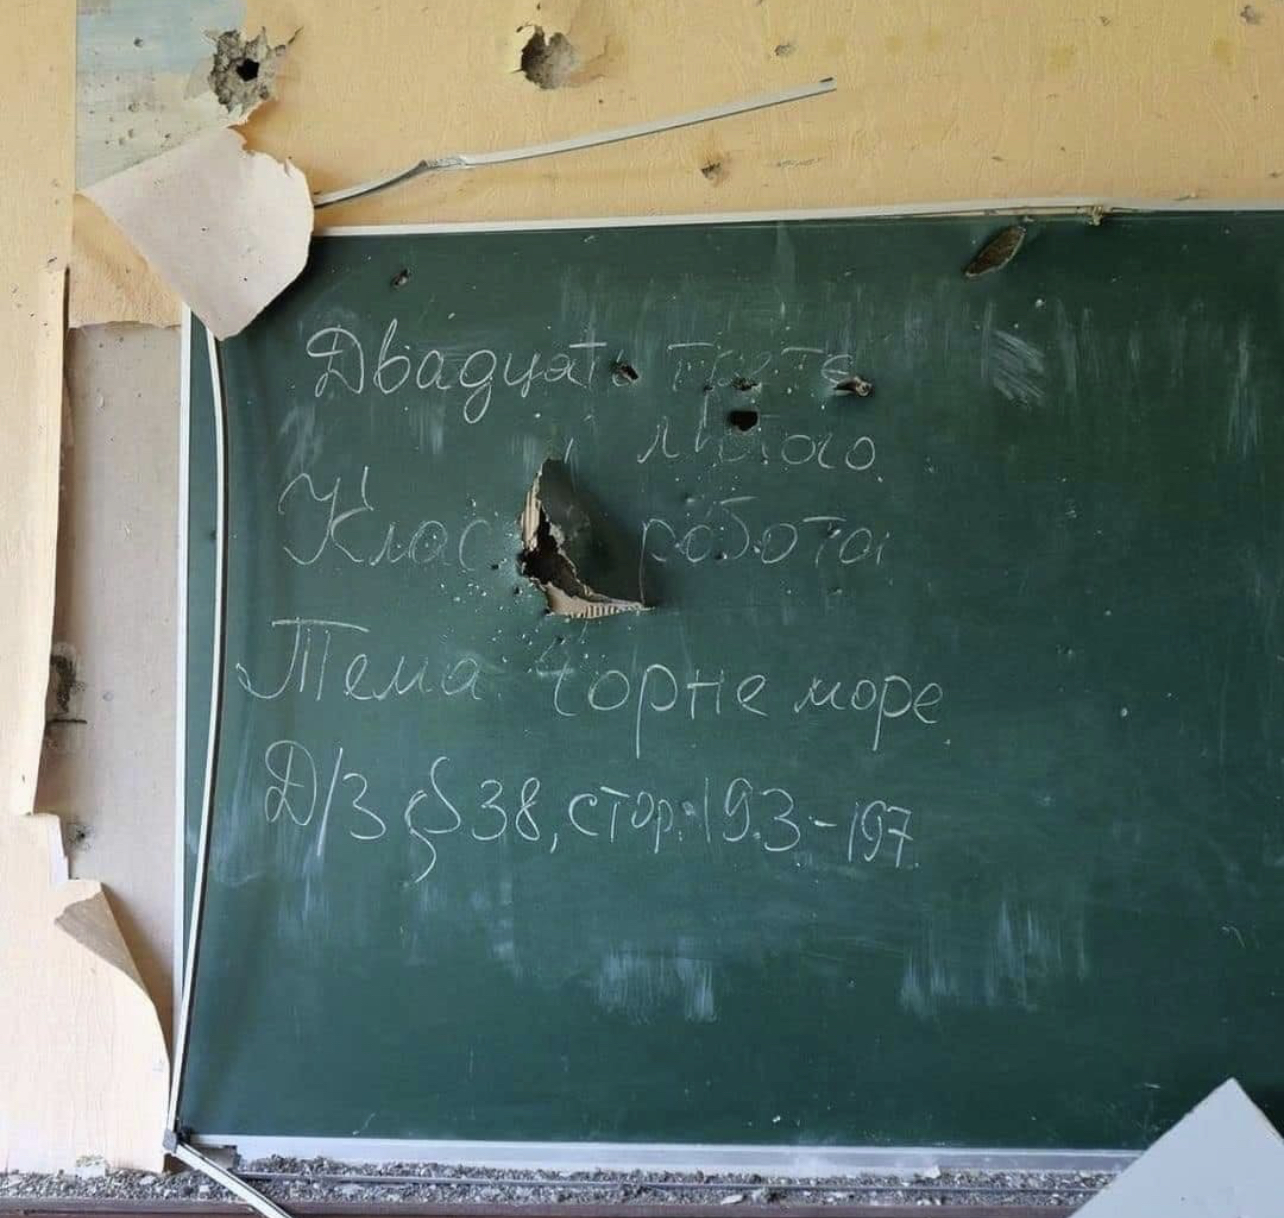 Двадцять третє
лютого
Клас робота
Тема Чорне море
Д/З §38, стор. 193-197.